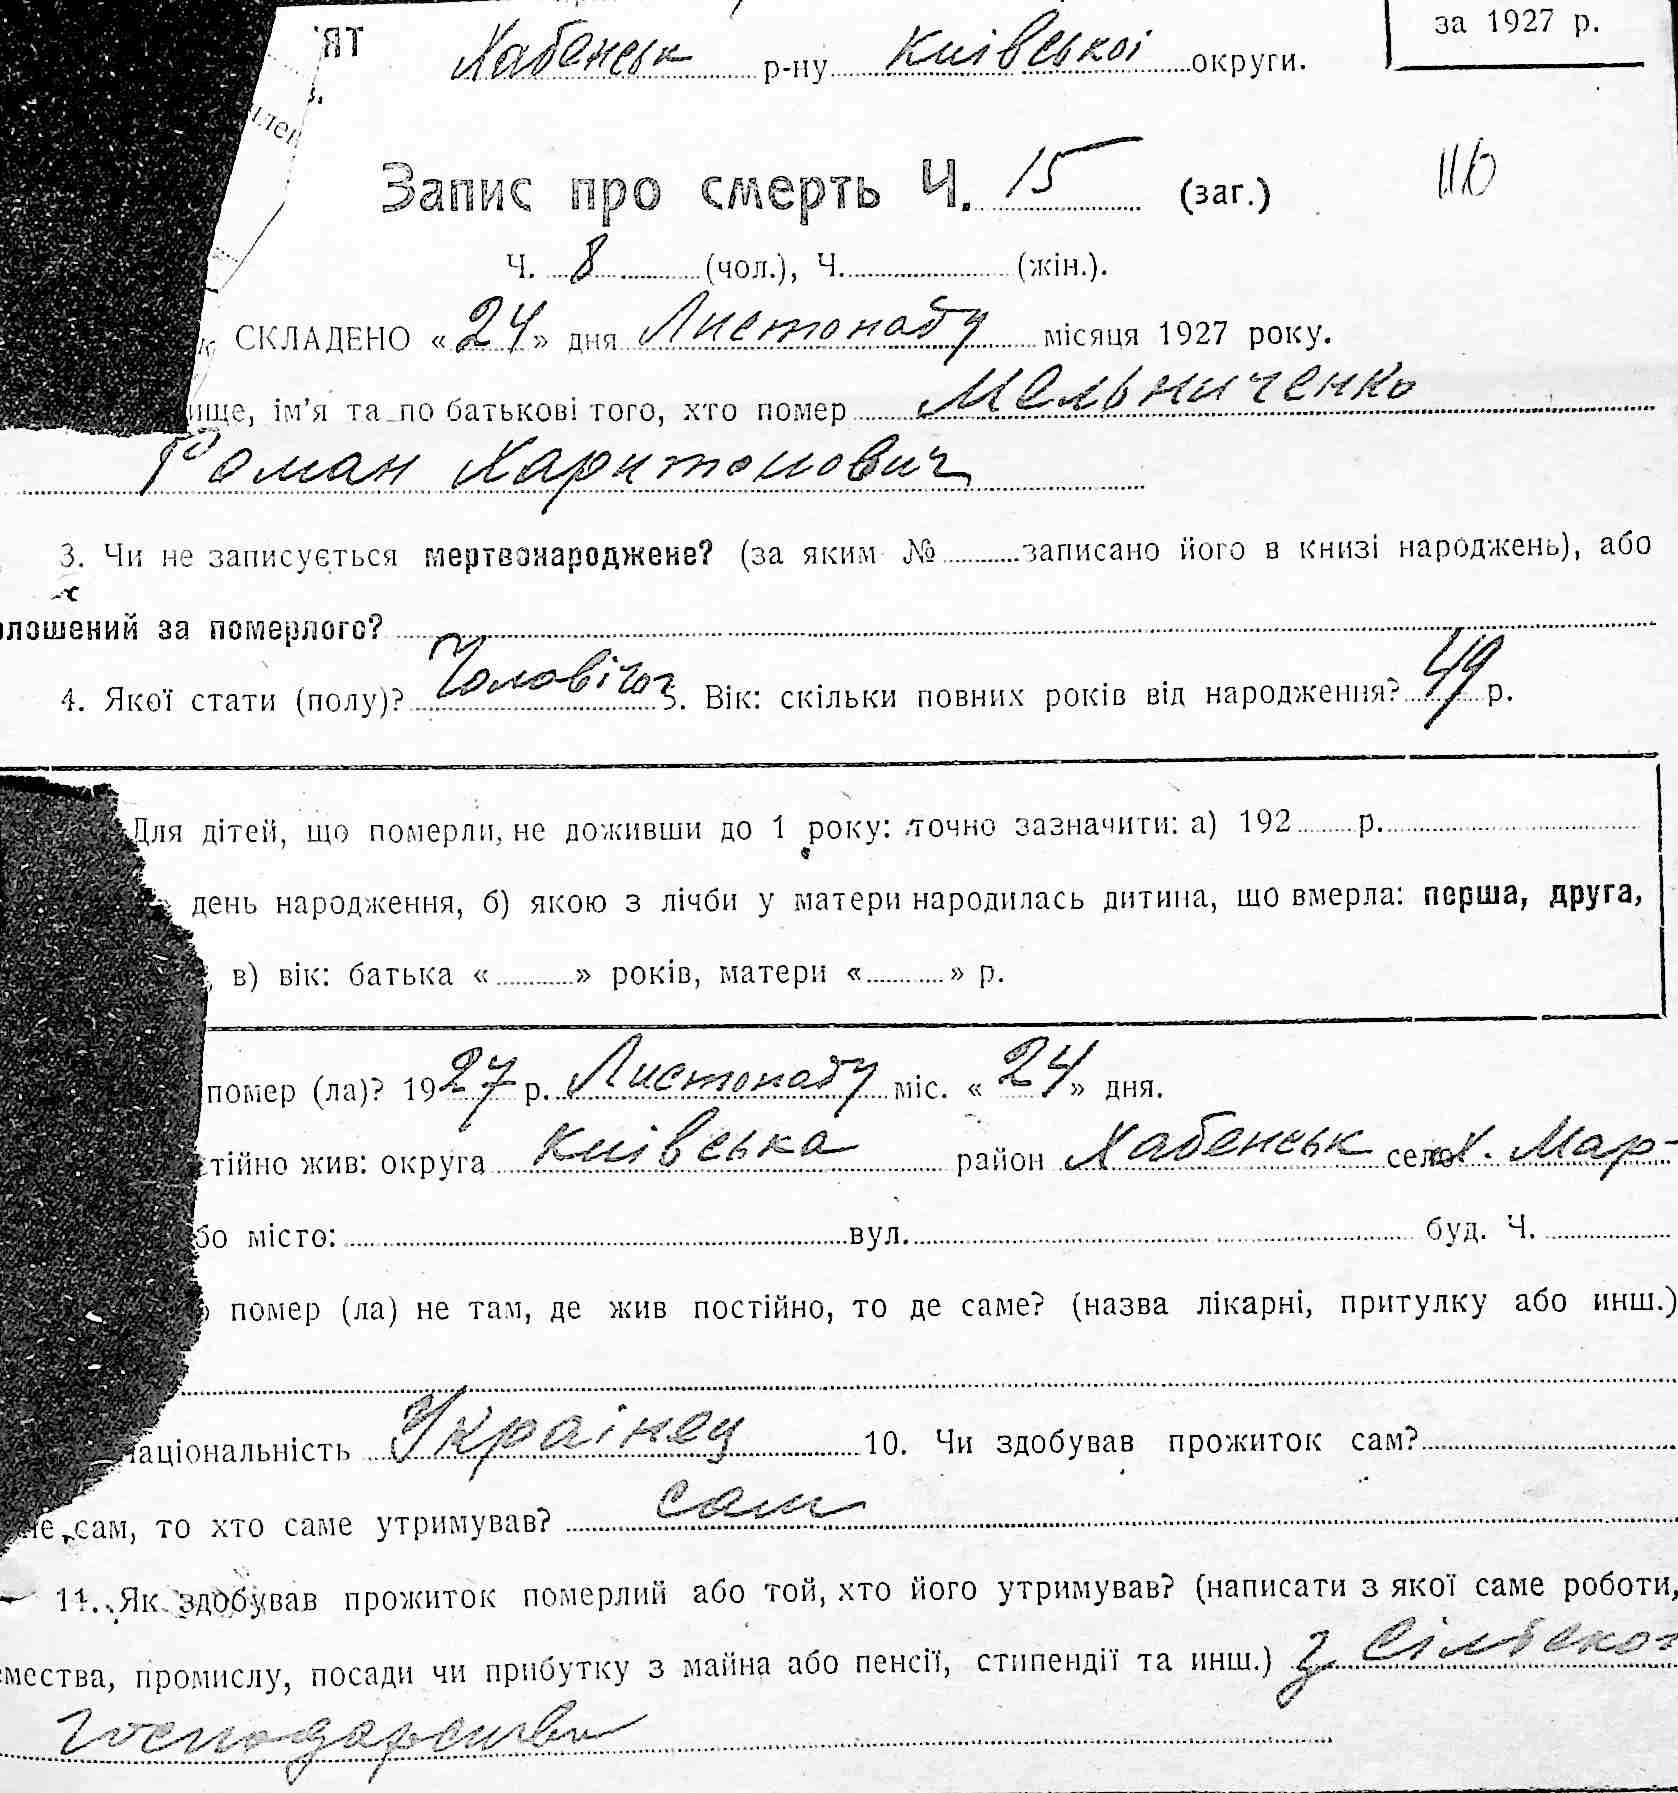 ʼЯТ
Хабенськ р-ну Київської округи.
за 1927 р.
Запис про смерть Ч. 15 (заг.)
116
Ч. 8 (чол.), Ч. (жін.).
СКЛАДЕНО «24» дня Листопаду місяця 1927 року.
ище, ім’я та по батькові того, хто помер Мельниченко
Роман Харитонович
3. Чи не записується мертвонароджене? (за яким № записано його в книзі народжень), або
олошений за померлого?
4. Якої стати (полу)? Чоловічої. Вік: скільки повних років від народження? 49 р.
Для дітей, що померли, не доживши до 1 року: точно зазначити: а) 192 р.
день народження, б) якою з лічби у матери народилась дитина, що вмерла: перша, друга,
в) вік: батька « » років, матери « » р.
помер (ла)? 1927 р. Листопаду міс. «24» дня.
стійно жив: округа Київська район Хабенськ село Х. Мар-
бо місто: вул. буд. Ч.
помер (ла) не там, де жив постійно, то де саме? (назва лікарні, притулку або инш.)
аціональність Українец 10. Чи здобував прожиток сам?
не сам, то хто саме утримував? сам
11. Як здобував прожиток померлий або той, хто його утримував? (написати з якої саме роботи,
мества, промислу, посади чи прибутку з майна або пенсії, стипендії та инш.) З сільського
господарства